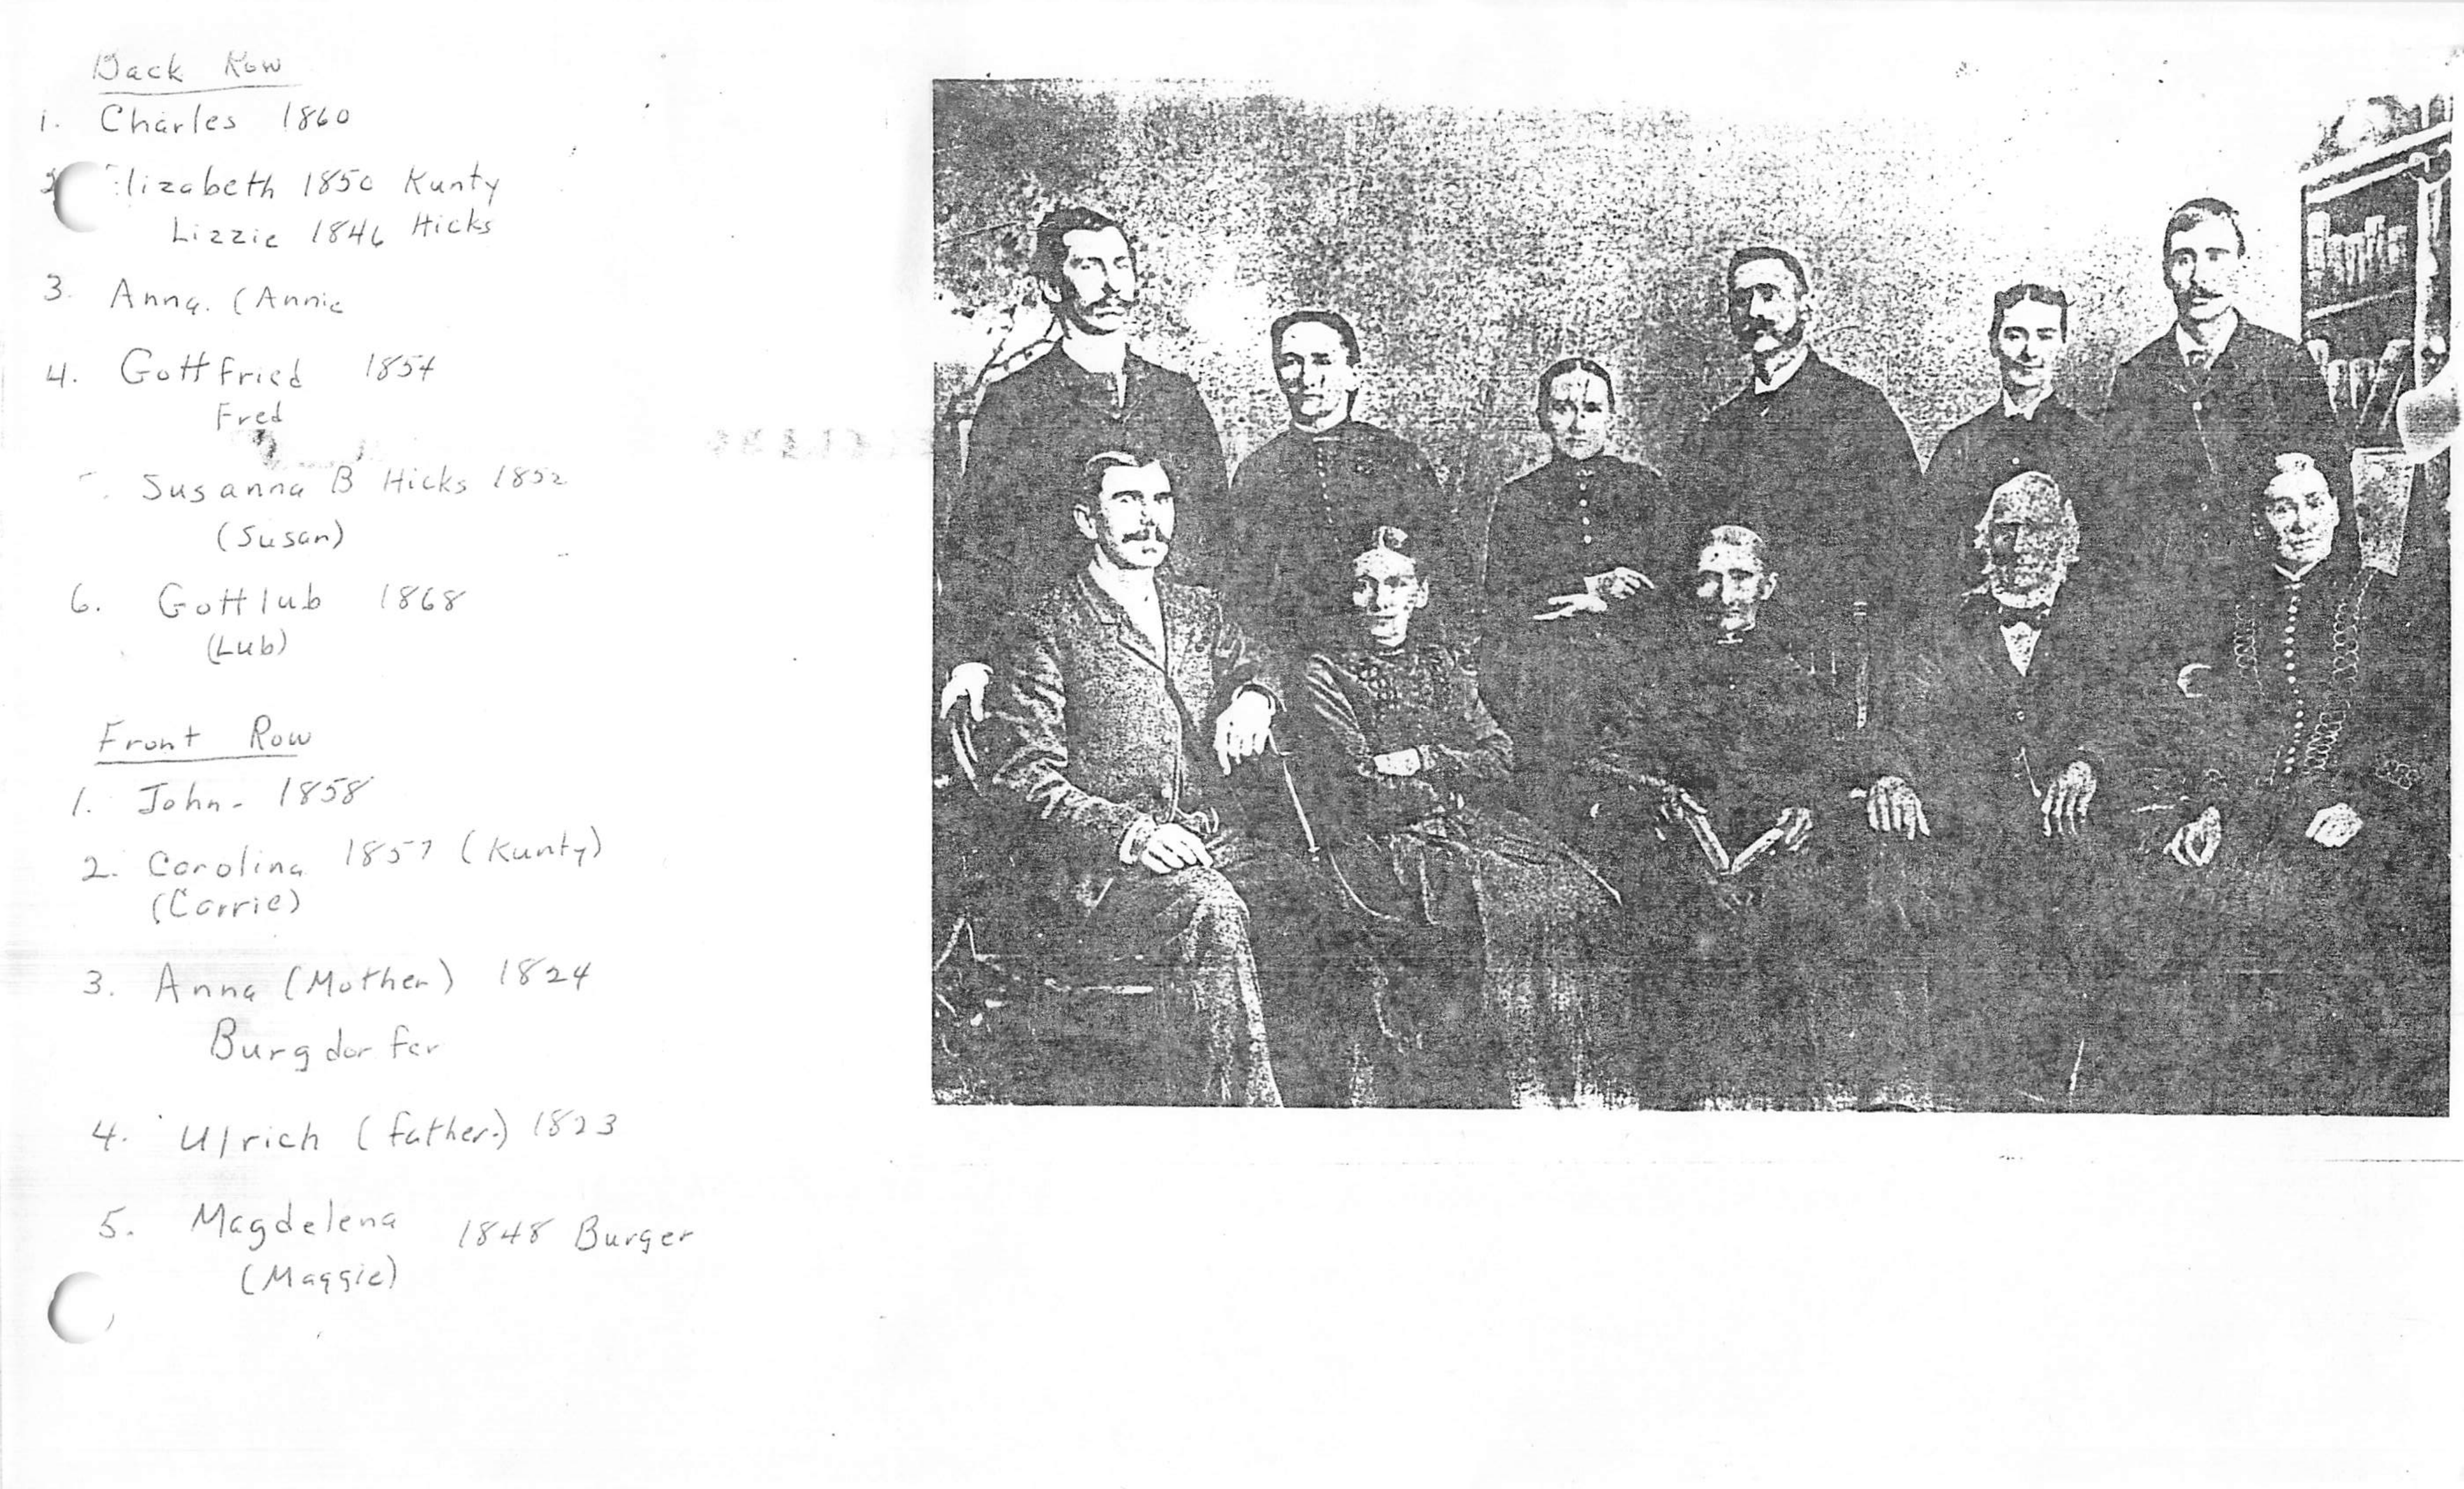 Back Row
1. Charles 1860
2 Elizabeth 1850 Kunty
Lizzie 1846 Hicks
3. Anna. (Annie
4. Gottfried 1854
Fred
Susanna B Hicks 1852
(Susan)
6. Gottlub 1868
(Lub)
Front Row
1. John - 1858
2. Carolina 1857 (Kunty)
(Carrie)
3. Anna (Mother) 1824
Burgdorfer
4. Ulrich (father.) 1823
5. Magdelena 1848 Burger
(Maggie)